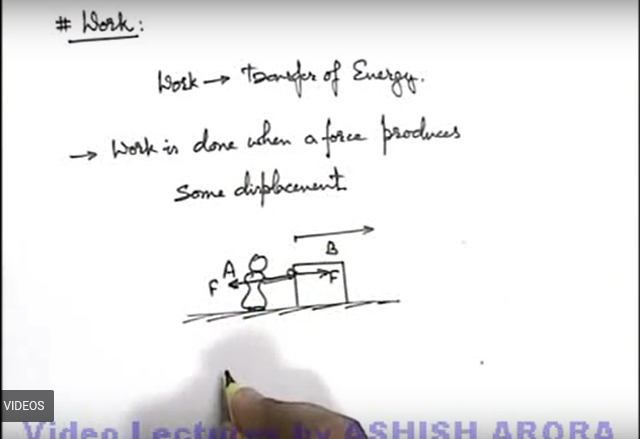 # Work:
Work → transfer of Energy.
→ Work is done when a force produces
some displacement
B
A
F
F
VIDEOS
Video Lectures by ASHISH ARORA